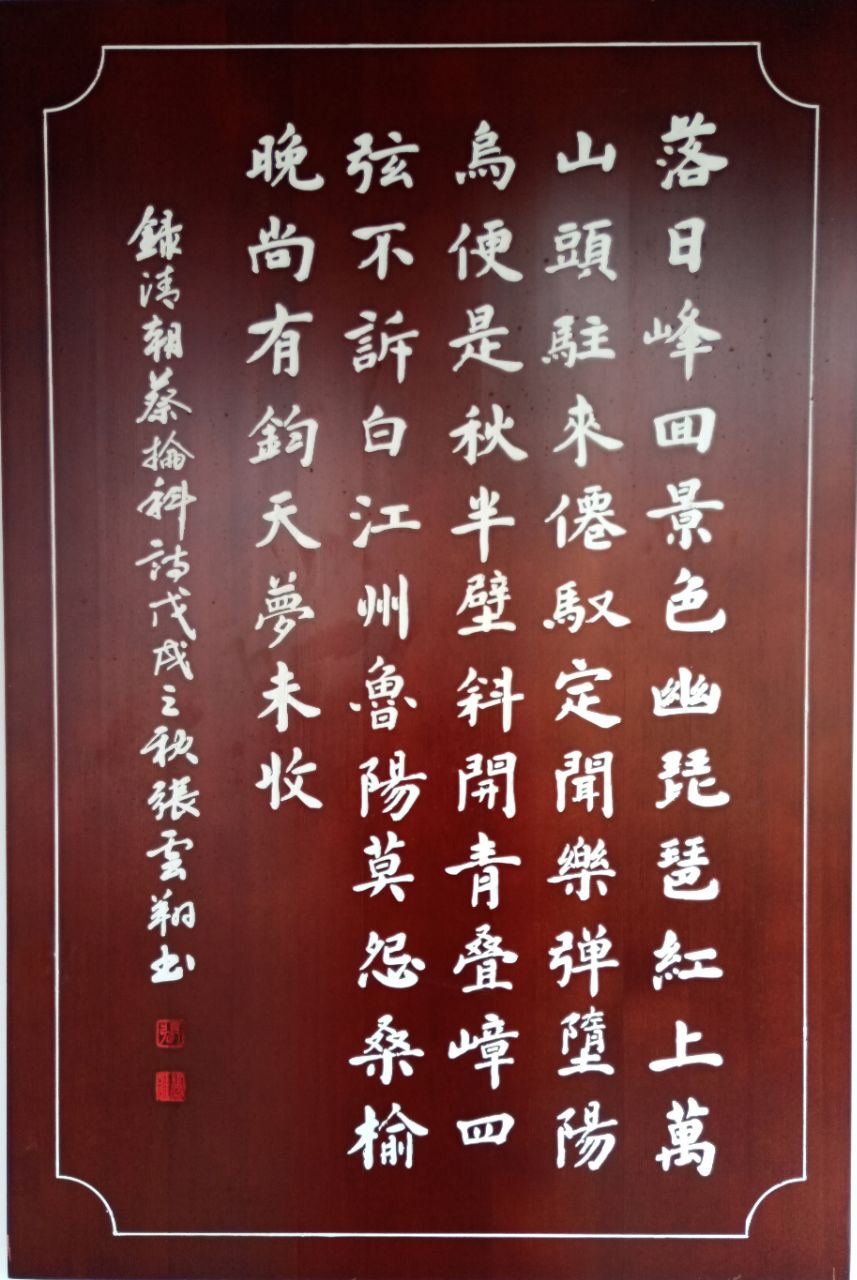 落日峰回景色幽琵琶紅上萬
山頭駐來僊馭定聞樂弹墮陽
烏便是秋半壁斜開青叠嶂四
弦不訴白江州魯陽莫怨桑榆
晚尚有鈞天夢未收
錄清朝蔡掄科詩戊戌之秋張雲翔书